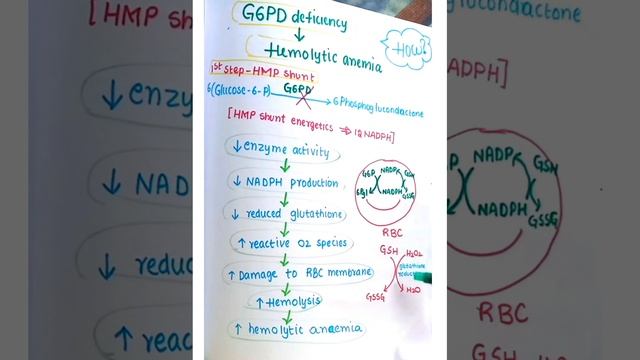 G6PD deficiency
Hemolytic anemia
HOW?
1st Step-HMP Shunt
6(Glucose-6-P) G6PD 6 Phosphogluconolactone
[HMP shunt energetics ⇒ 12 NADPH]
↓ enzyme activity
↓ NADPH production
↓ reduced glutathione
↑ reactive O2 species
↑ Damage to RBC membrane
↑ Hemolysis
↑ hemolytic anaemia
G6P NADP GSH
6Pgl NADPH GSSG
RBC
GSH H2O2
glutathione
GSSG H2O
[HMP sh
↓ enzy
↓ NAD
↓ reduc
↑ reac
NADPH]
P NADP GSH
NADPH GSSG
RBC